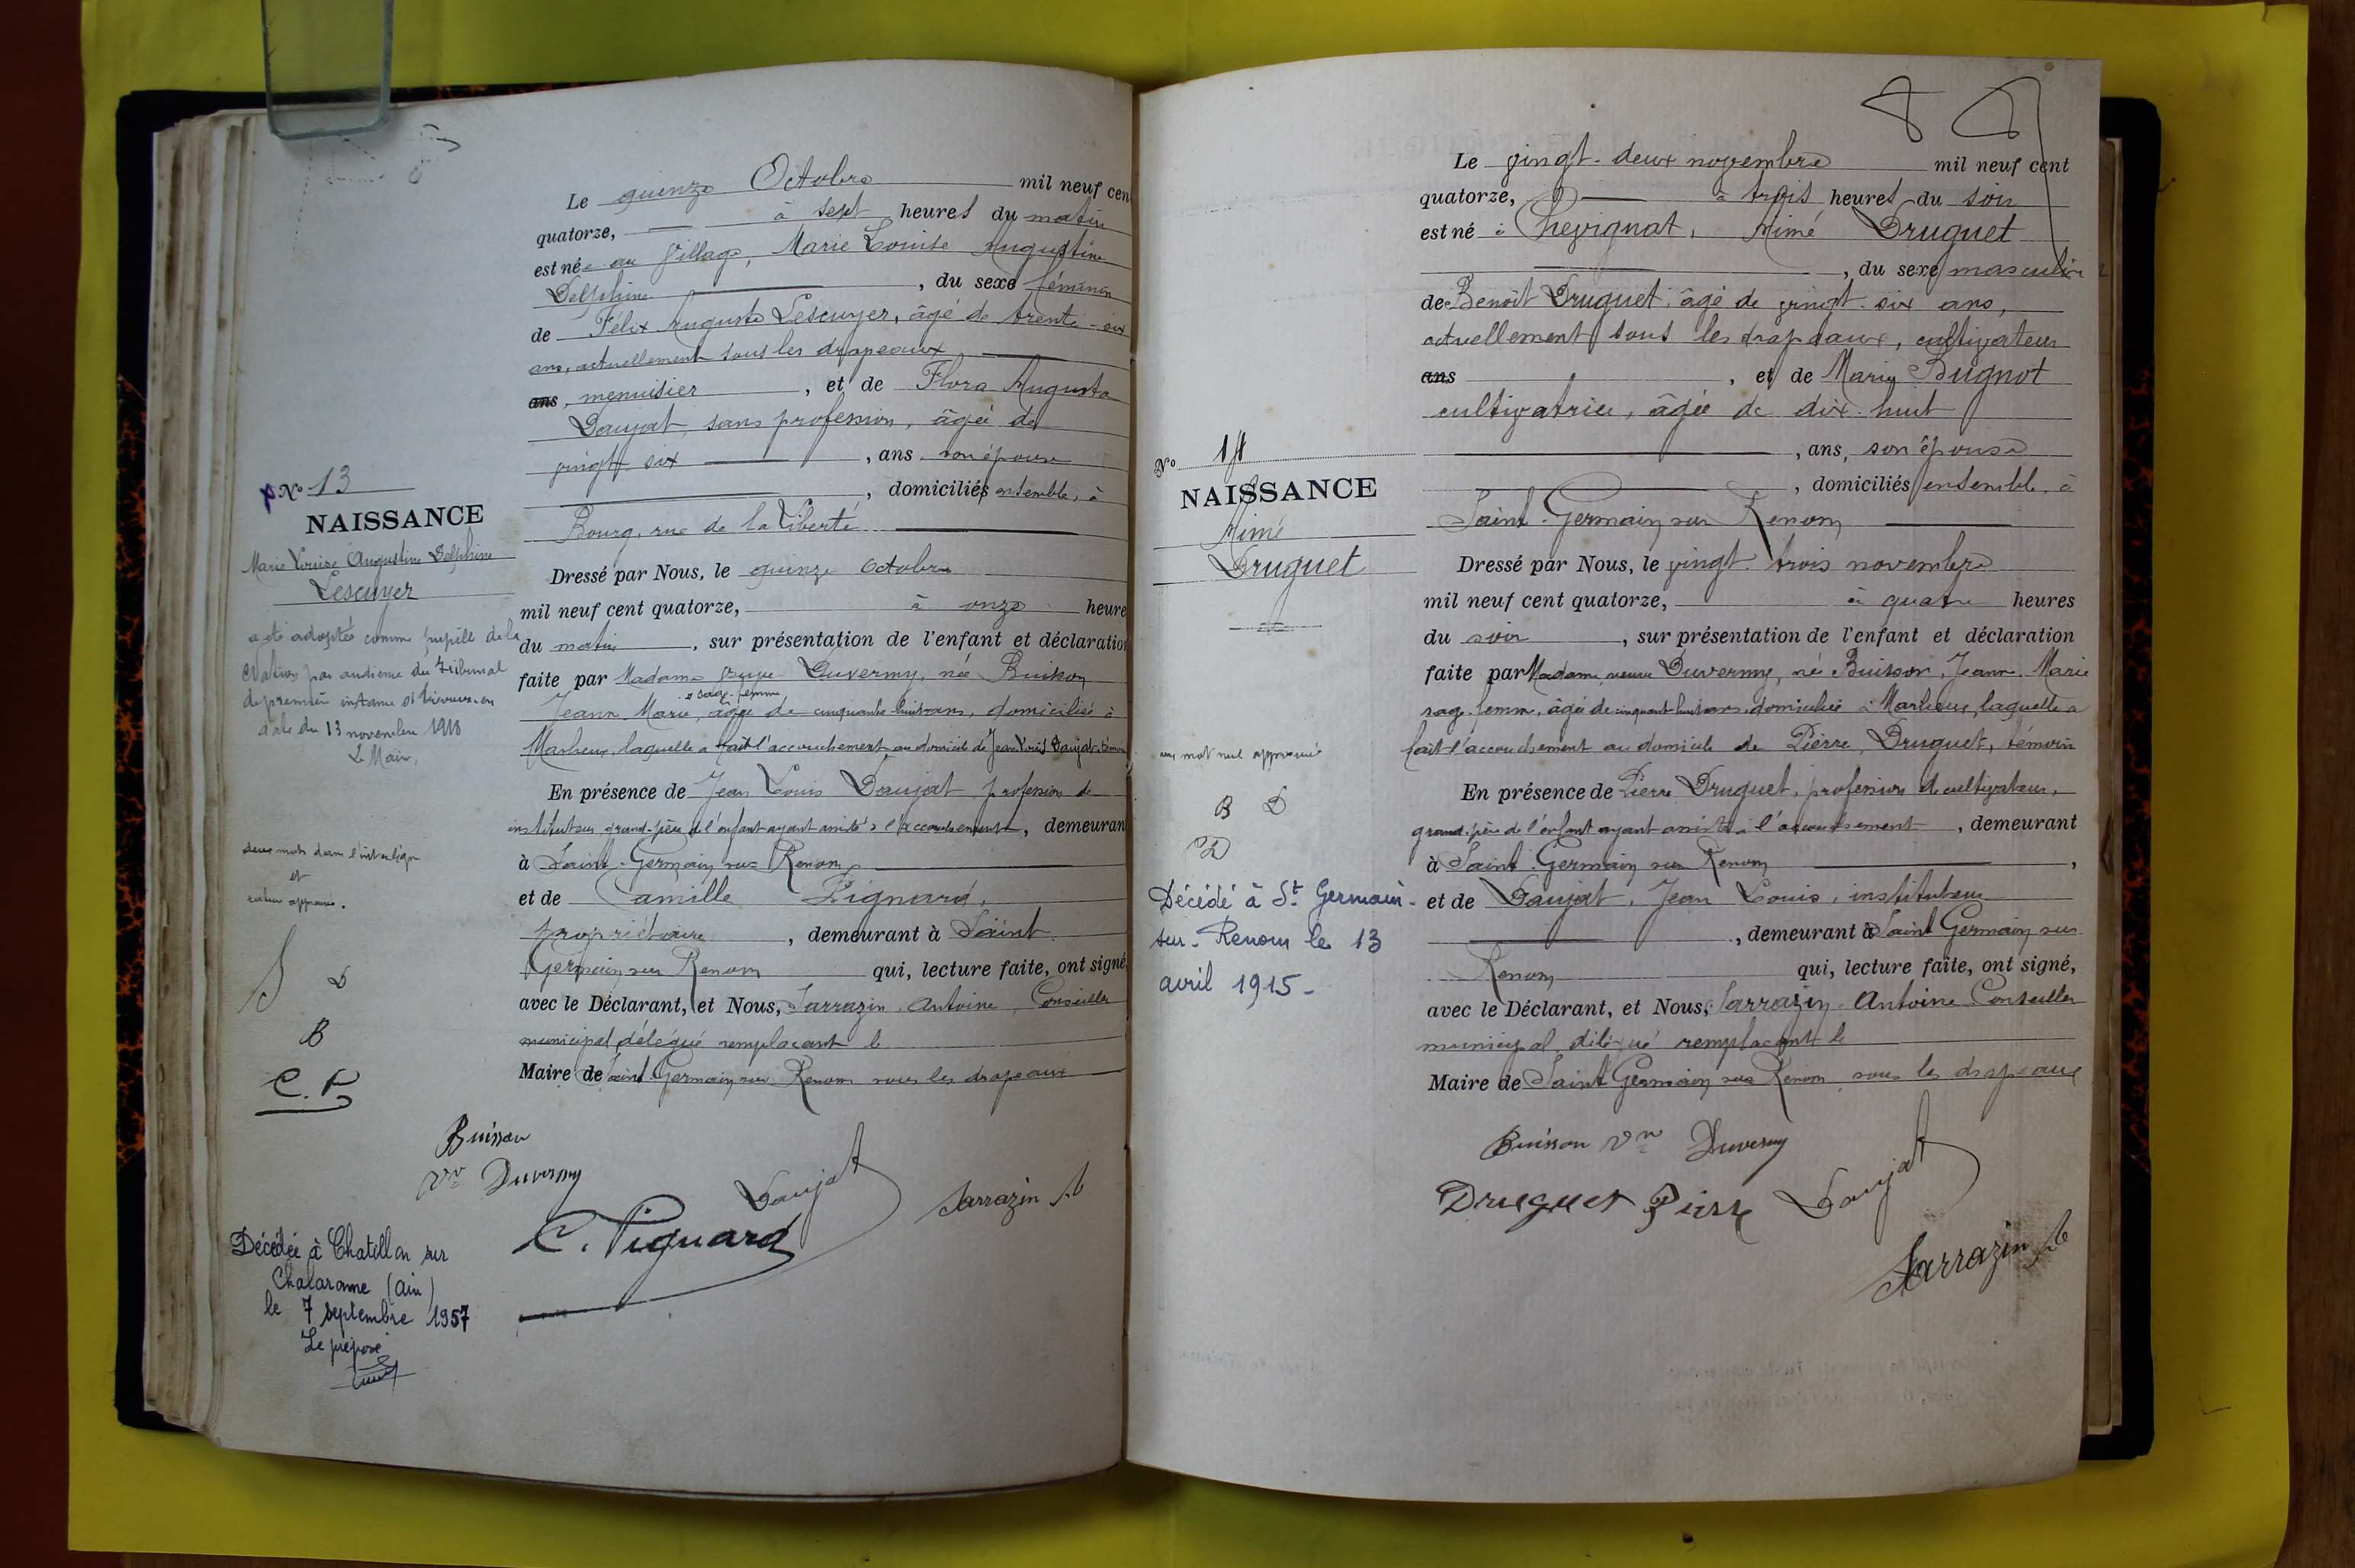 Le quinze Octobre mil neuf cen
quatorze, à sept heures du matin
est née au Village, Marie Louise Augustine
Delphine, du sexe féminin
de Félix Auguste Lescuyer, âgé de trente-six
ans, actuellement sous les drapeaux
ans, menuisier, et de Flora Augusta
Daujat, sans profession, âgée de
vingt six, ans son épouse
, domiciliés ensemble, à
Bourg, rue de la Liberté
Dressé par Nous, le quinze Octobre
mil neuf cent quatorze, à onze heure
du matin, sur présentation de l'enfant et déclaration
faite par Madame veuve Duvermy, née Buisson
sage-femme
Jeanne Marie, âgée de cinquante-huit ans, domiciliée à
Marlieux, laquelle a fait l'accouchement au domicile de Jean Louis Daujat, témoin
En présence de Jean Louis Daujat, profession de
instituteur grand-père de l'enfant ayant assisté à l'accouchement, demeuran
à Saint-Germain sur Renom
et de Camille Pignard,
propriétaire, demeurant à Saint
Germain sur Renom qui, lecture faite, ont signé
avec le Déclarant, et Nous, Sarrazin, Antoine, Conseiller
municipal délégué remplaçant le
Maire de Saint Germain sur Renom sous les drapeaux
N° 13
NAISSANCE
Marie Louise Augustine Delphine
Lescuyer
a été adoptée comme pupille de la
Nation par audience du Tribunal
de première instance de Trévoux en
date du 13 novembre 1918
Le Maire,
deux mots dans l'interligne
et
rature approuvés.
S D
B
C. P
Buisson
Vve Duvermy
Daujat
Sarrazin At
C. Pignard
Décédée à Chatillon sur
Chalaronne (Ain)
le 7 septembre 1957
Le préposé
Le vingt-deux novembre mil neuf cent
quatorze, à trois heures du soir
est né à Chevignat, Aimé Druguet
, du sexe masculin
de Benoît Druguet, âgé de vingt-six ans,
actuellement sous les drapeaux, cultivateur
ans, et de Marie Bugnot
cultivatrice, âgée de dix-huit
, ans, son épouse
, domiciliés ensemble, à
Saint-Germain sur Renom
Dressé par Nous, le vingt-trois novembre
mil neuf cent quatorze, à quatre heures
du soir, sur présentation de l'enfant et déclaration
faite par Madame veuve Duvermy, né Buisson, Jeanne Marie
sage-femme, âgée de cinquante huit ans domiciliée à Marlieux, laquelle a
fait l'accouchement au domicile de Pierre Druguet, témoin
En présence de Pierre Druguet, profession de cultivateur,
grand-père de l'enfant ayant assisté à l'accouchement, demeurant
à Saint-Germain sur Renom,
et de Daujat, Jean Louis, instituteur
, demeurant à Saint Germain sur
Renom qui, lecture faite, ont signé,
avec le Déclarant, et Nous, Sarrazin Antoine Conseiller
municipal, délégué remplaçant le
Maire de Saint Germain sur Renom sous les drapeaux
N° 14
NAISSANCE
Aimé
Druguet
un mot nul approuvé
B D
D
Décédé à St Germain-
sur-Renom le 13
avril 1915-
Buisson Vve Duvermy
Druguet Pierre Daujat
Sarrazin At